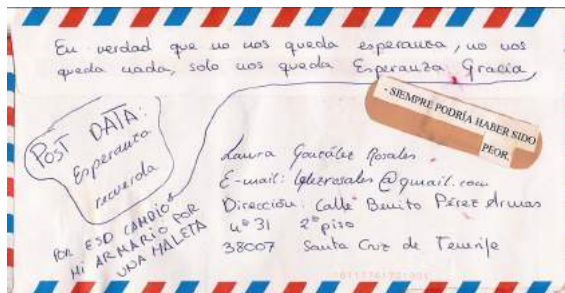 En verdad que no nos queda esperanza, no nos
queda nada, solo nos queda Esperanza Gracia
- SIEMPRE PODRÍA HABER SIDO
PEOR.
POST DATA:
Esperanza
recuerda
POR ESO CAMBIO
MI ARMARIO POR
UNA MALETA
Laura González Rosales
E-mail: @gmail.com
Dirección: Calle Benito Pérez Armas
nº 31 2º piso
38007 Santa Cruz de Tenerife